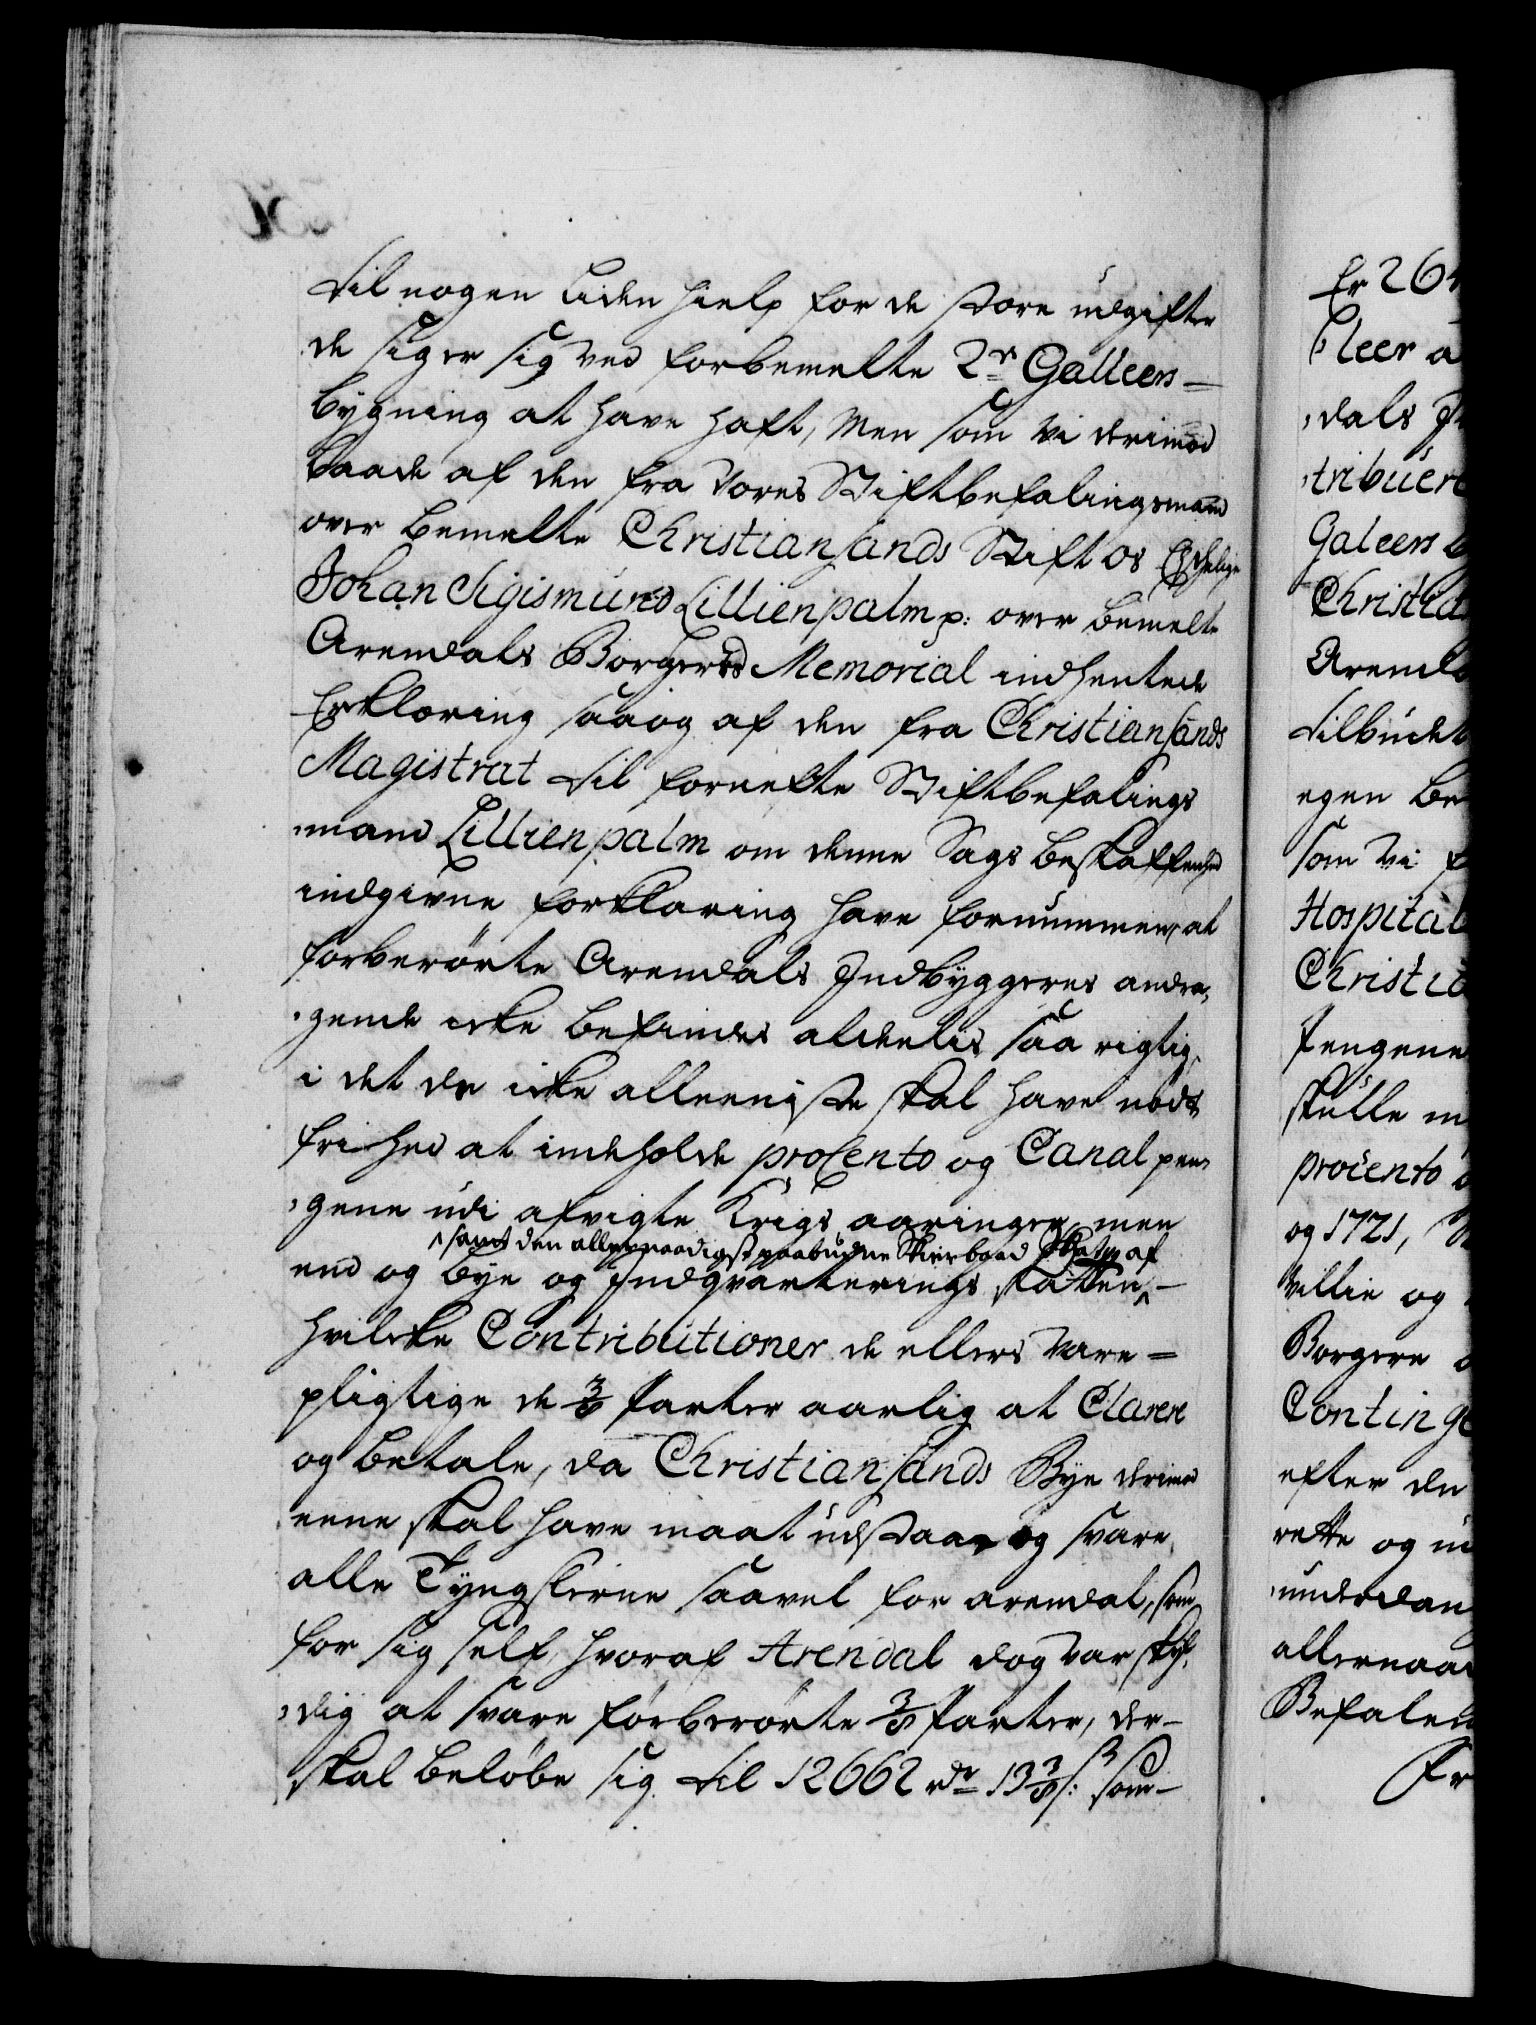 til nogen liden hielp for de store udgifter
de siger sig ved forbemelte 2de Galleers
bygning at have haft, Men som Vi derimod
baade af den fra Vores Stiftbefalingsmand
over bemelte Christiansands Stift Os Elskelig
Johan Sigismund Lillienpalm p: over bemelte
Arendals Borgeres Memorial indhentede
Erklæring saa og af den fra Christiansands
Magistrat til fornefte Stiftbefalings
mand Lillienpalm om denne Sags beskaffenhed
indgivne forklaring have fornummen, at
forberørte Arendals Indbyggeres andra-
gende icke befindes aldeelis saa rigtig,
i det de icke alleeniste skal have nødt
frihed at indeholde procento og Canal pen-
gene udi afvigte Krigs aaringer, men
samt den allernaadigst paabudne Skierbaad Skatt af
end og bye og Indqvarterings skatten
hvilcke Contributioner de ellers vare
pligtige de 3/8 Parter aarlig at Clarere
og betale, da Christiansands Bye derimod
eene skal have maat udstaae og svare
alle Tyngslerne saavel for arendal, som
for sig self, hvoraf Arendal dog var skyl-
dig at svare forberørte 3/8 Parter, der
skal beløbe sig til 12662 rdr 13 3/8 s: som
Er 264
leer a
dals
tribuere
Galeers
Christia
Arenda
tilbudet
egen be
som Vi
Hospital
Christia
Pengene
skulle
procento
og 1721,
Villie og
Borgere
Continge
efter den
rette og
underdan
allernaa
Befale